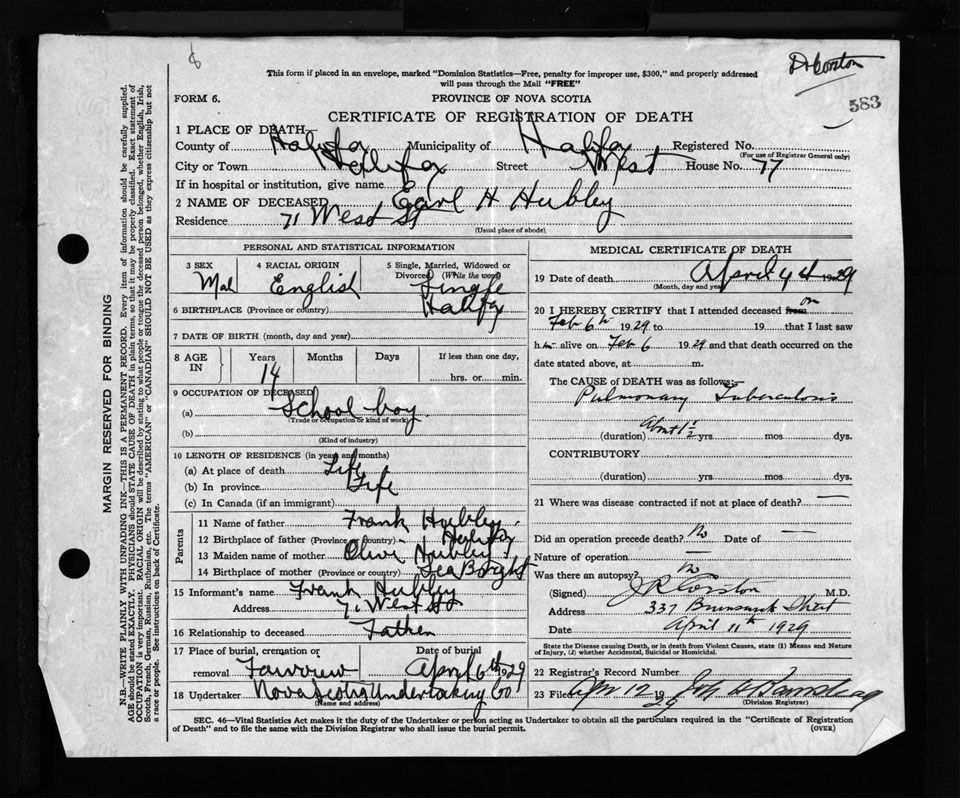 Dr Corston
583
This form if placed in an envelope, marked "Dominion Statistics—Free, penalty for improper use, $300," and properly addressed
will pass through the Mail "FREE"
FORM 6. PROVINCE OF NOVA SCOTIA
CERTIFICATE OF REGISTRATION OF DEATH
1 PLACE OF DEATH
County of Halifax Municipality of Halifax Registered No.
(For use of Registrar General only)
City or Town Halifax Street West House No. 77
If in hospital or institution, give name
2 NAME OF DECEASED Earl H Hubley
Residence 71 West St
(Usual place of abode)
PERSONAL AND STATISTICAL INFORMATION
3 SEX 4 RACIAL ORIGIN 5 Single, Married, Widowed or
Divorced (Write the word)
Mal English Single
6 BIRTHPLACE (Province or country) Halifax
7 DATE OF BIRTH (month, day and year)
8 AGE IN Years Months Days If less than one day,
14 hrs. or min.
9 OCCUPATION OF DECEASED
(a) School boy
(Trade or occupation or kind of work)
(b)
(Kind of industry)
10 LENGTH OF RESIDENCE (in years and months)
(a) At place of death Life
(b) In province Life
(c) In Canada (if an immigrant)
Parents
11 Name of father Frank Hubley
12 Birthplace of father (Province or country) Halifax
13 Maiden name of mother Olive Hubley
14 Birthplace of mother (Province or country) Sea Bright
15 Informant's name Frank Hubley
Address 71 West St
16 Relationship to deceased Father
17 Place of burial, cremation or removal Date of burial
Fairview April 6th 29
18 Undertaker Nova Scotia Undertaking Co
(Name and address)
MEDICAL CERTIFICATE OF DEATH
19 Date of death April 4th 1929
(Month, day and year)
20 I HEREBY CERTIFY that I attended deceased from on
Feb 6th 1929 to 19 that I last saw
him alive on Feb 6 1929 and that death occurred on the
date stated above, at m.
The CAUSE of DEATH was as follows:
Pulmonary Tuberculosis
(duration) About 1½ yrs. mos. dys.
CONTRIBUTORY
(duration) yrs. mos. dys.
21 Where was disease contracted if not at place of death? —
Did an operation precede death? No Date of —
Nature of operation —
Was there an autopsy? No
(Signed) J R Corston M.D.
Address 337 Brunswick Street
Date April 11th 1929
State the Disease causing Death, or in death from Violent Causes, state (1) Means and Nature
of Injury, (2) whether Accidental, Suicidal or Homicidal.
22 Registrar's Record Number
23 Filed Apr 12 29
(Division Registrar)
SEC. 46—Vital Statistics Act makes it the duty of the Undertaker or person acting as Undertaker to obtain all the particulars required in the "Certificate of Registration
of Death" and to file the same with the Division Registrar who shall issue the burial permit. (OVER)
MARGIN RESERVED FOR BINDING
N.B.—WRITE PLAINLY WITH UNFADING INK—THIS IS A PERMANENT RECORD. Every item of information should be carefully supplied.
AGE should be stated EXACTLY. PHYSICIANS should STATE CAUSE OF DEATH in plain terms, so that it may be properly classified. Exact statement of
OCCUPATION is very important. RACIAL ORIGIN will be described by stating to what people or tongue the deceased person belonged, whether English, Irish,
Scotch, French, German, Russian, Ruthenian, etc. The terms "AMERICAN" or "CANADIAN" SHOULD NOT BE USED as they express citizenship but not
a race or people. See instructions on back of Certificate.